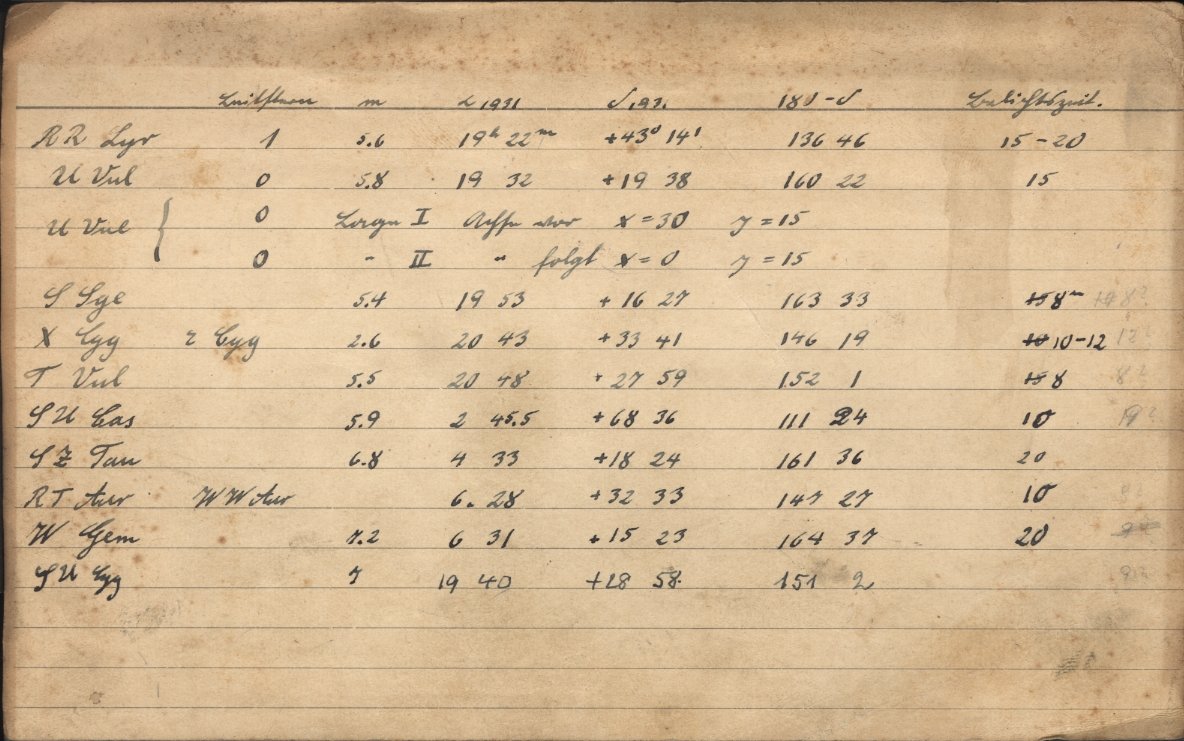 Leitstern m α 1931 δ 1931 180-δ Belichtszeit.
RR Lyr 1 5.6 19h 22m +43° 14' 136 46 15-20
U Vul 0 5.8 19 32 +19 38 160 22 15
U Vul { 0 Lage I Achse vor x=30 y=15
0 " II " folgt x=0 y=15
S Sge 5.4 19 53 +16 27 163 33 15 8m
X Cyg ε Cyg 2.6 20 43 +33 41 146 19 10 10-12 12?
T Vul 5.5 20 48 +27 59 152 1 15 8 8?
SU Cas 5.9 2 45.5 +68 36 111 24 10 19?
SZ Tau 6.8 4 33 +18 24 161 36 20
RT Aur WW Aur 6. 28 +32 33 147 27 10
W Gem 7.2 6 31 +15 23 164 37 20
SU Cyg 7 19 40 +28 58 151 2